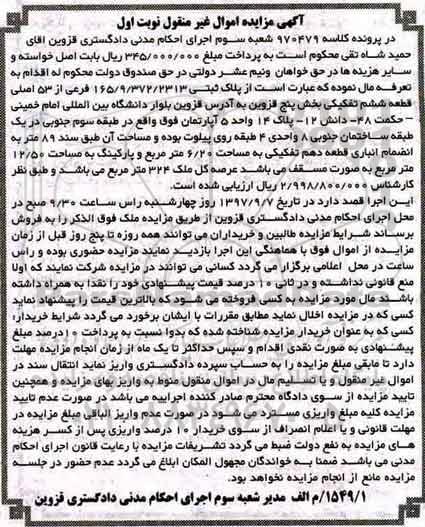 آگهی مزایده اموال غیر منقول نوبت اول
در پرونده کلاسه ۹۷۰۴۷۹ شعبه سوم اجرای احکام مدنی دادگستری قزوین آقای
حمید شاه تقی محکوم است به پرداخت مبلغ ۳۴۵/۰۰۰/۰۰۰ ریال بابت اصل خواسته و
سایر هزینه ها در حق خواهان ونیم عشر دولتی در حق صندوق دولت محکوم له اقدام به
تعرفه مال نموده که عبارت است از پلاک ثبتی ۱۶۵/۹/۳۷۲/۲۳۱۳ فرعی از ۵۳ اصلی
قطعه ششم تفکیکی بخش پنج قزوین به آدرس قزوین بلوار دانشگاه بین المللی امام خمینی
– حکمت ۴۸- دانش ۱۲- پلاک ۱۴ واحد ۵ آپارتمان فوق واقع در طبقه سوم جنوبی در یک
طبقه ساختمان جنوبی ۸ واحدی ۴ طبقه روی پیلوت بوده و مساحت آن طبق سند ۸۹ متر به
انضمام انباری قطعه دهم تفکیکی به مساحت ۶/۲۰ متر مربع و پارکینگ به مساحت ۱۲/۵۰
متر مربع به صورت مسقف می باشد عرصه کل ملک ۳۲۴ متر مربع می باشد و طبق نظر
کارشناس ۲/۹۹۸/۸۰۰/۰۰۰ ریال ارزیابی شده است.
ایـن اجرا قصد دارد در تاریخ ۱۳۹۷/۹/۷ روز چهارشنبه راس ساعت ۹/۳۰ صبح در
محل اجرای احکام مدنی دادگستری قزوین از طریق مزایده ملک فوق الذکر را به فروش
برساند شرایط مزایده طالبین و خریداران می توانند همه روزه تا پنج روز قبل از زمان
مزایده از اموال فوق با هماهنگی این اجرا بازدید نمایند مزایده حضوری بوده و راس
ساعت در محل اعلامی برگزار می گردد کسانی می توانند در مزایده شرکت نمایند که اولا
منع قانونی نداشته و در ثانی ۱۰ درصد قیمت پیشنهادی خود را نقدا به همراه داشته
باشند مال مورد مزایده به کسی فروخته می شود که بالاترین قیمت را پیشنهاد نماید
کسی که در مزایده اخلال نماید مطابق مقررات با ایشان برخورد می گردد شرایط خریدار:
کسی که به عنوان خریدار مزایده شناخته شده که بدوا نسبت به پرداخت ۱۰درصد مبلغ
پیشنهادی به صورت نقدی اقدام و سپس حداکثر تا یک ماه از زمان انجام مزایده مهلت
دارد تا مابقی مبلغ مزایده را به حساب سپرده دادگستری واریز نماید انتقال سند در
اموال غیر منقول و یا تسلیم مال در اموال منقول منوط به واریز بهای مزایده و همچنین
تایید مزایده از سوی دادگاه محترم صادر کننده اجراییه می باشد در صورت عدم تایید
مزایده کلیه مبلغ واریزی مسترد می شود در صورت عدم واریز الباقی مبلغ مزایده در
مهلت قانونی و یا اعلام انصراف از سوی خریدار ۱۰ درصد واریزی پس از کسر هزینه
های مزایده به نفع دولت ضبط می گردد تشریفات مزایده با رعایت قانون اجرای احکام
مدنی می باشد ضمنا به خواندگان مجهول المکان ابلاغ می گردد عدم حضور در جلسه
مزایده مانع از انجام مزایده نخواهد بود.
۱۵۴۹/۱/م الف مدیر شعبه سوم اجرای احکام مدنی دادگستری قزوین